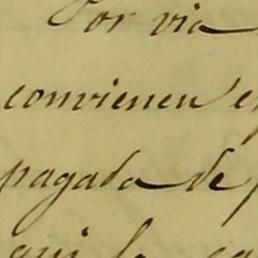 Por via
convienen e
pagada de